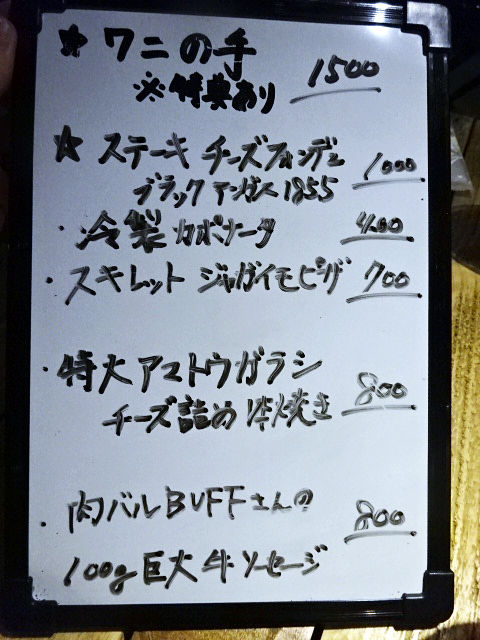 ★ ワニの手 1500
※特典あり
★ ステーキ チーズフォンデュ 1000
ブラックアンガス1855
・冷製カポナータ 400
・スキレット ジャガイモピザ 700
・特大アマトウガラシ 800
チーズ詰め 1本焼き
・肉バルBUFFさんの 800
100g巨大牛ソーセージ